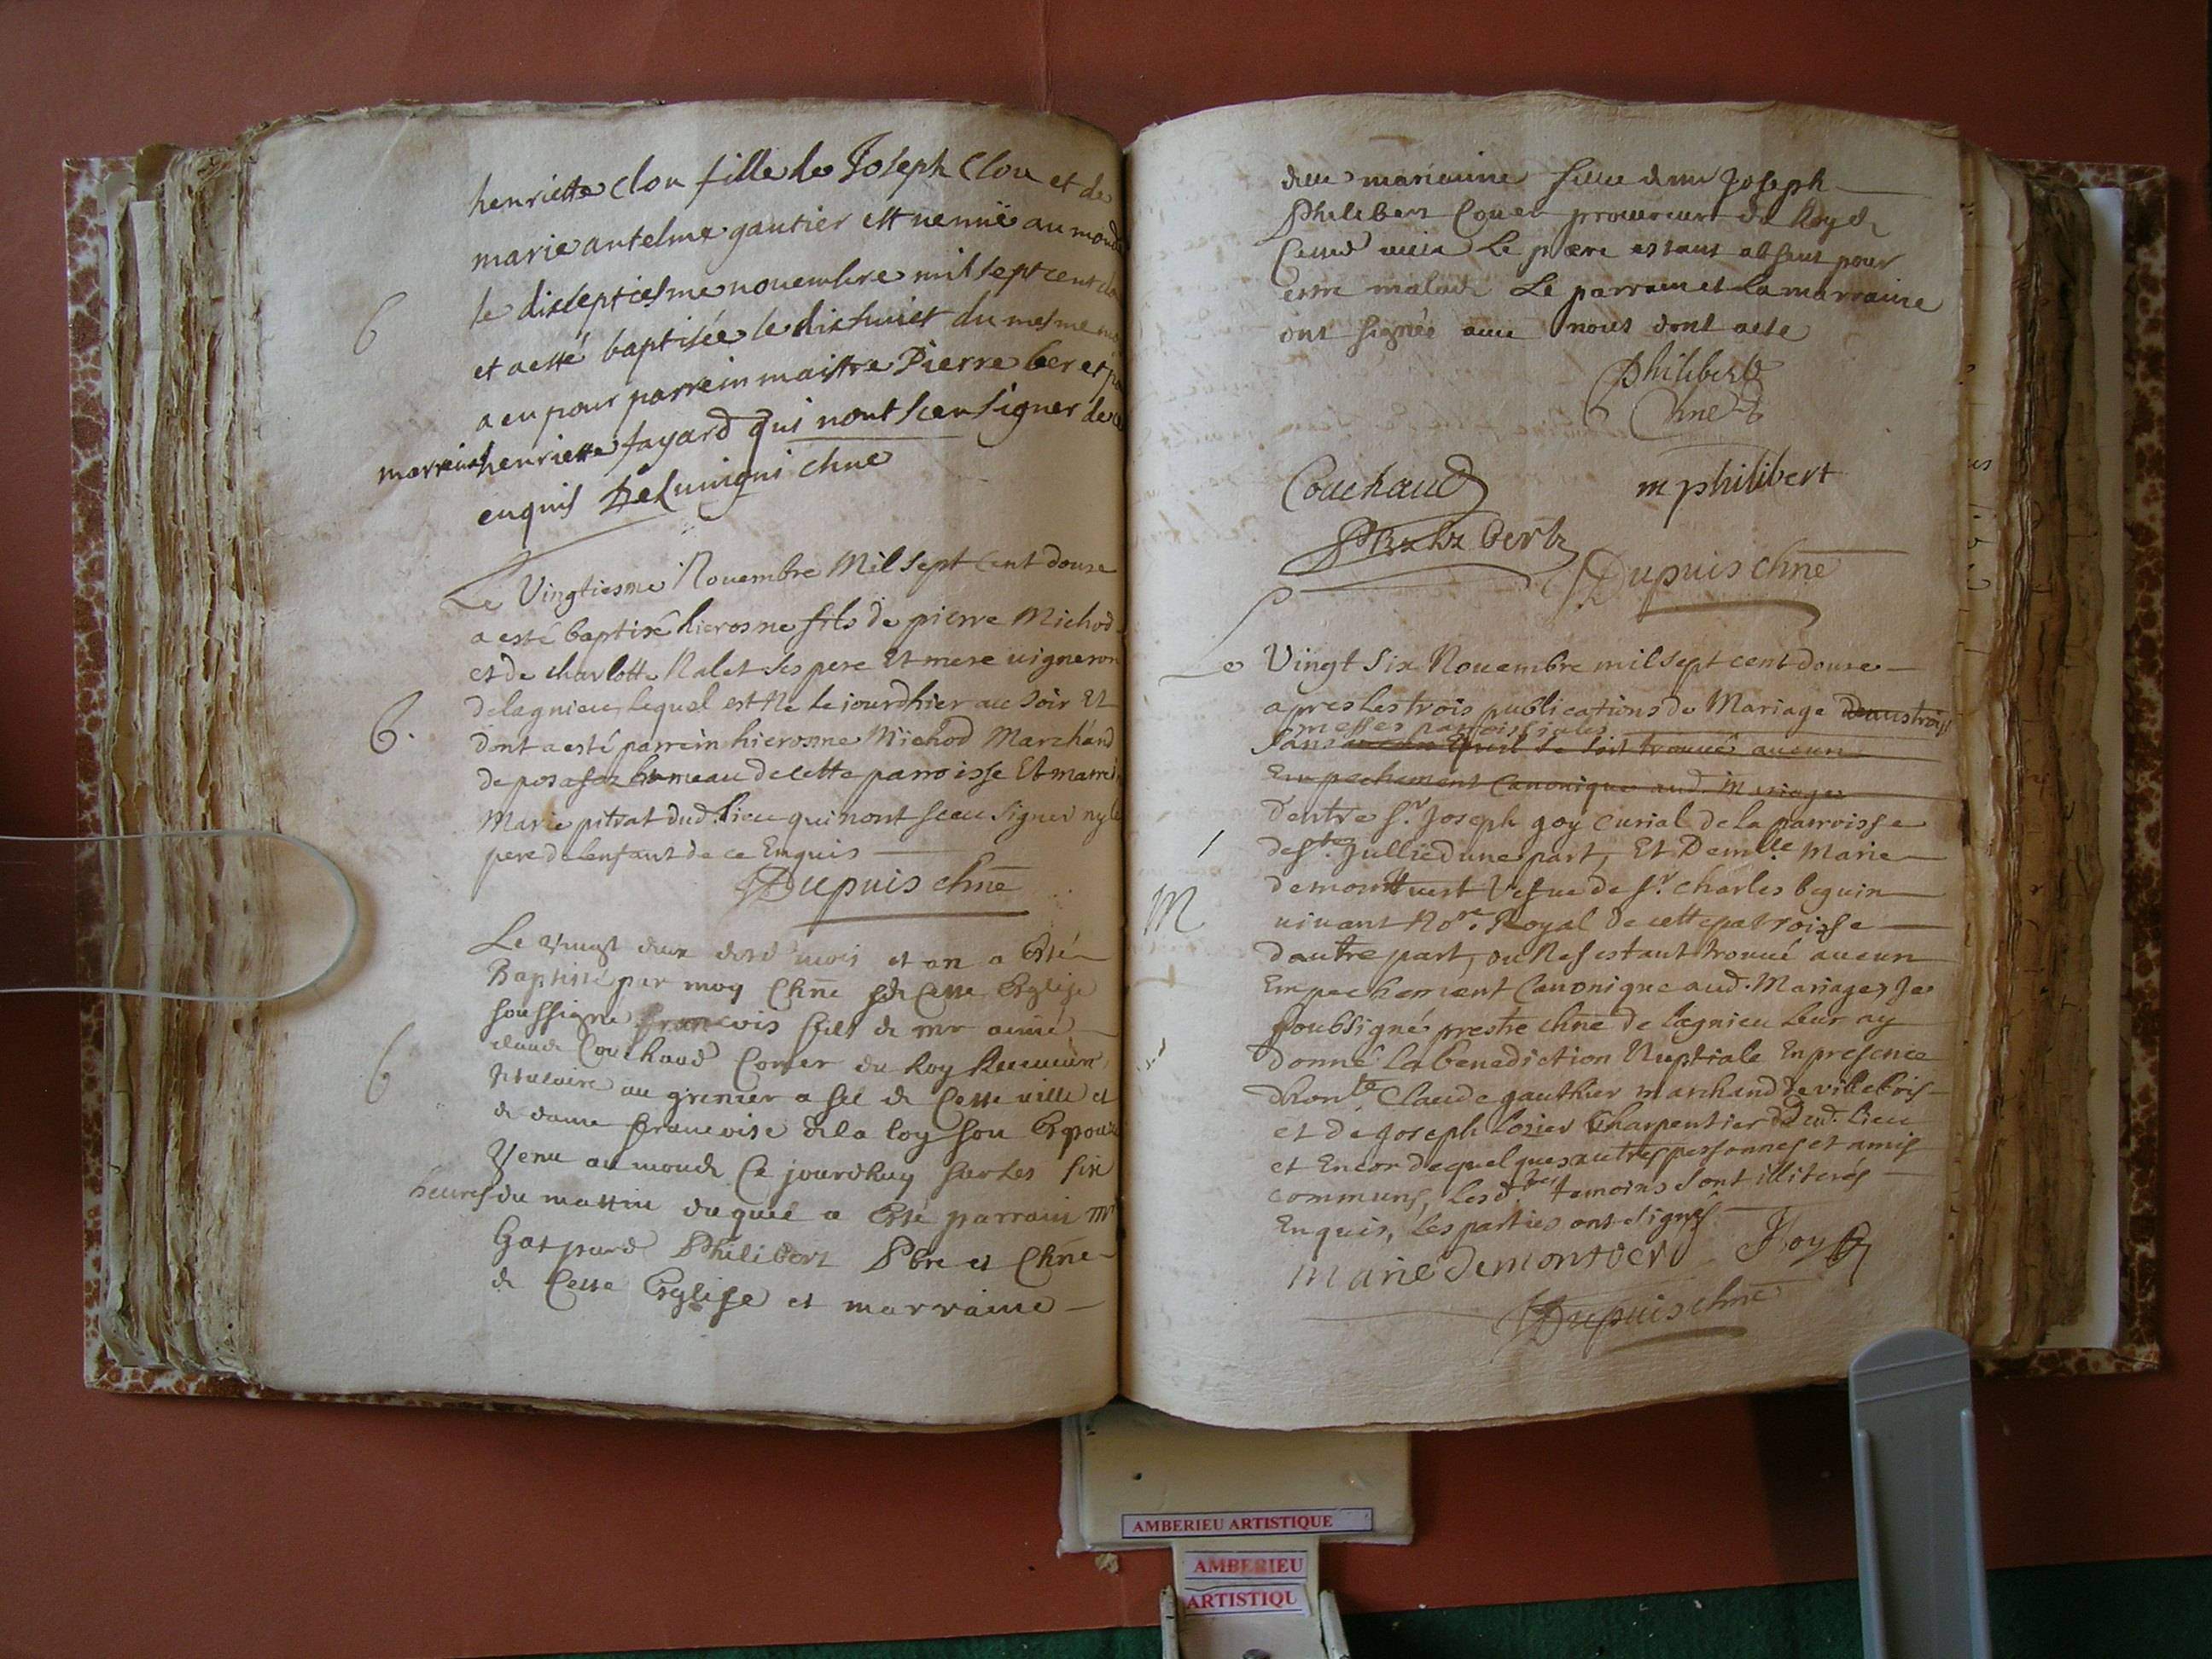 henriette clou fille de Joseph Clou et de
marie antelme gautier est venuë au monde
le diseptiesme nouembre mil sept cent do
et a esté baptisée le dixhuict du mesme mo
a eu pour parrein maistre Pierre ber et po
marreine henriette fayard qui nont sceu signer de ce
enquis Deluuigni chne
Le Vingtiesme Nouembre Mil sept Cent douse
a esté baptisé hierosme fils de pierre Michod
et de charlotte Nalet ses pere Et mere uigneron
de lagnieu, lequel est Né le jourdhier au soir Et
6.
dont a esté parrein hierosme Michod Marchand
de posafoz hameau de cette parroisse Et marrei
Marie pitrat dud. lieu qui nont sceu signer ny le
pere de lenfant de ce Enquis
Dupuis chne
Le Vingt deux dud mois et an a Esté
Baptisé par moy Chne de Cette Esglise
soussigne francois fils de mr aimé
claude Couchaud Coner du Roy
au grenier a sel de Cette uille et
de dame francoise de la loy son Espouze
Venu au monde Ce jourdhuy sur les six
heures du mattin duquel a Esté parrain Mr
Gaspard Philibert Pbre et Chne
de Cette Esglise et marraine
dlle marianne fille de mr Joseph
Philibert Coner procureur du Roy
le pere estant absent pour
estre malade Le parrain et La marraine
ont signée auec nous dont acte
Philibert
Chne
Couchaud
m philibert
Philibert
Dupuis chne
Le Vingt Six Nouembre mil sept cent douse
apres les trois publications de Mariage deuus trois
messes parroissiales
Sans quil se soit trouué aucun
Empechement Canonique aud. Mariage
D'entre Sr. Joseph goy curial de la parroisse
de Ste. Jullie d'une part, Et Demlle Marie
M
de montuert Vefue de Sr. Charles beguin
uiuant Nore. Royal de cette parroisse
d'autre part, ou Nes estant trouué aucun
Empechement Canonique aud. Mariage, Je
soubsigné prestre chne de lagnieu leur ay
Donné la benediction Nuptiale En presence
d'honte Claude gauthier marchand de villebois
et de Joseph losier Charpentier dud. lieu
et Encor de quelques autres personnes et amis
communs, lesd. temoins sont illiterés
Enquis, les parties ont signé.
marie demontvert Goy
Dupuis chne
AMBERIEU ARTISTIQUE
AMBERIEU
ARTISTIQU